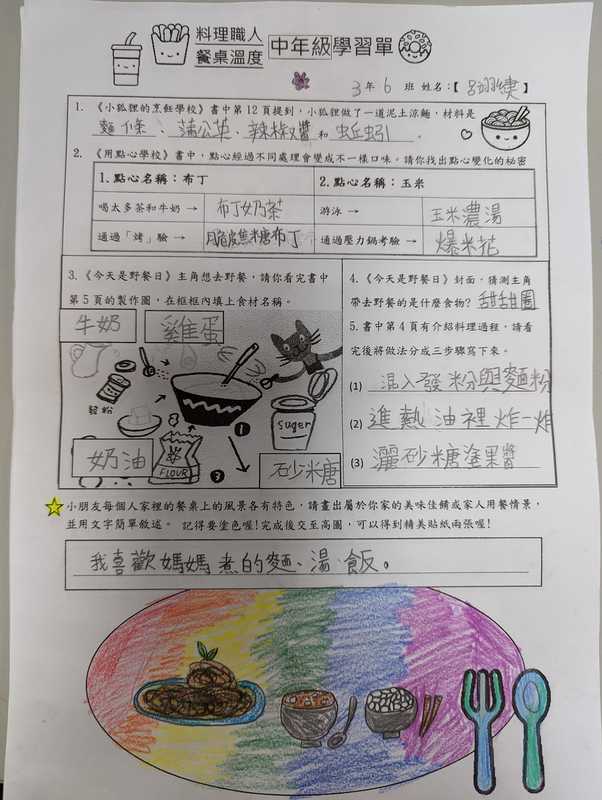 料理職人
餐桌溫度
中年級學習單
3年 6 班 姓名：【 】
1. 《小狐狸的烹飪學校》書中第12頁提到，小狐狸做了一道泥土涼麵，材料是
麵條、蒲公英、辣椒醬和蚯蚓。
2. 《用點心學校》書中，點心經過不同處理會變成不一樣口味。請你找出點心變化的秘密
1. 點心名稱：布丁 2. 點心名稱：玉米
喝太多茶和牛奶→ 布丁奶茶 游泳→ 玉米濃湯
通過「烤」驗→ 脆皮焦糖布丁 通過壓力鍋考驗→ 爆米花
3. 《今天是野餐日》主角想去野餐，請你看完書中
第5頁的製作圖，在框框內填上食材名稱。
牛奶 雞蛋
發粉
suger
1
奶油
FLOUR
3
砂米糖
4. 《今天是野餐日》封面，猜測主角
帶去野餐的是什麼食物？甜甜圈
5. 書中第4頁有介紹料理過程，請看
完後將做法分成三步驟寫下來。
(1) 混入發粉與麵粉
(2) 進熱油裡炸一炸
(3) 灑砂糖塗果醬
小朋友每個人家裡的餐桌上的風景各有特色，請畫出屬於你家的美味佳餚或家人用餐情景，
並用文字簡單敘述。 記得要塗色喔！完成後交至高園，可以得到精美貼紙兩張喔！
我喜歡媽媽煮的麵、湯、飯。